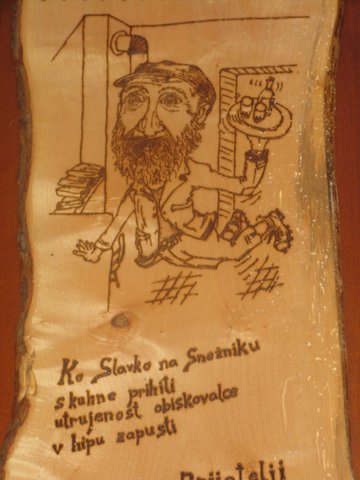 Ko Slavko na Snežniku
s kuhne prihiti
utrujenost obiskovalce
v hipu zapusti
Prijatelji